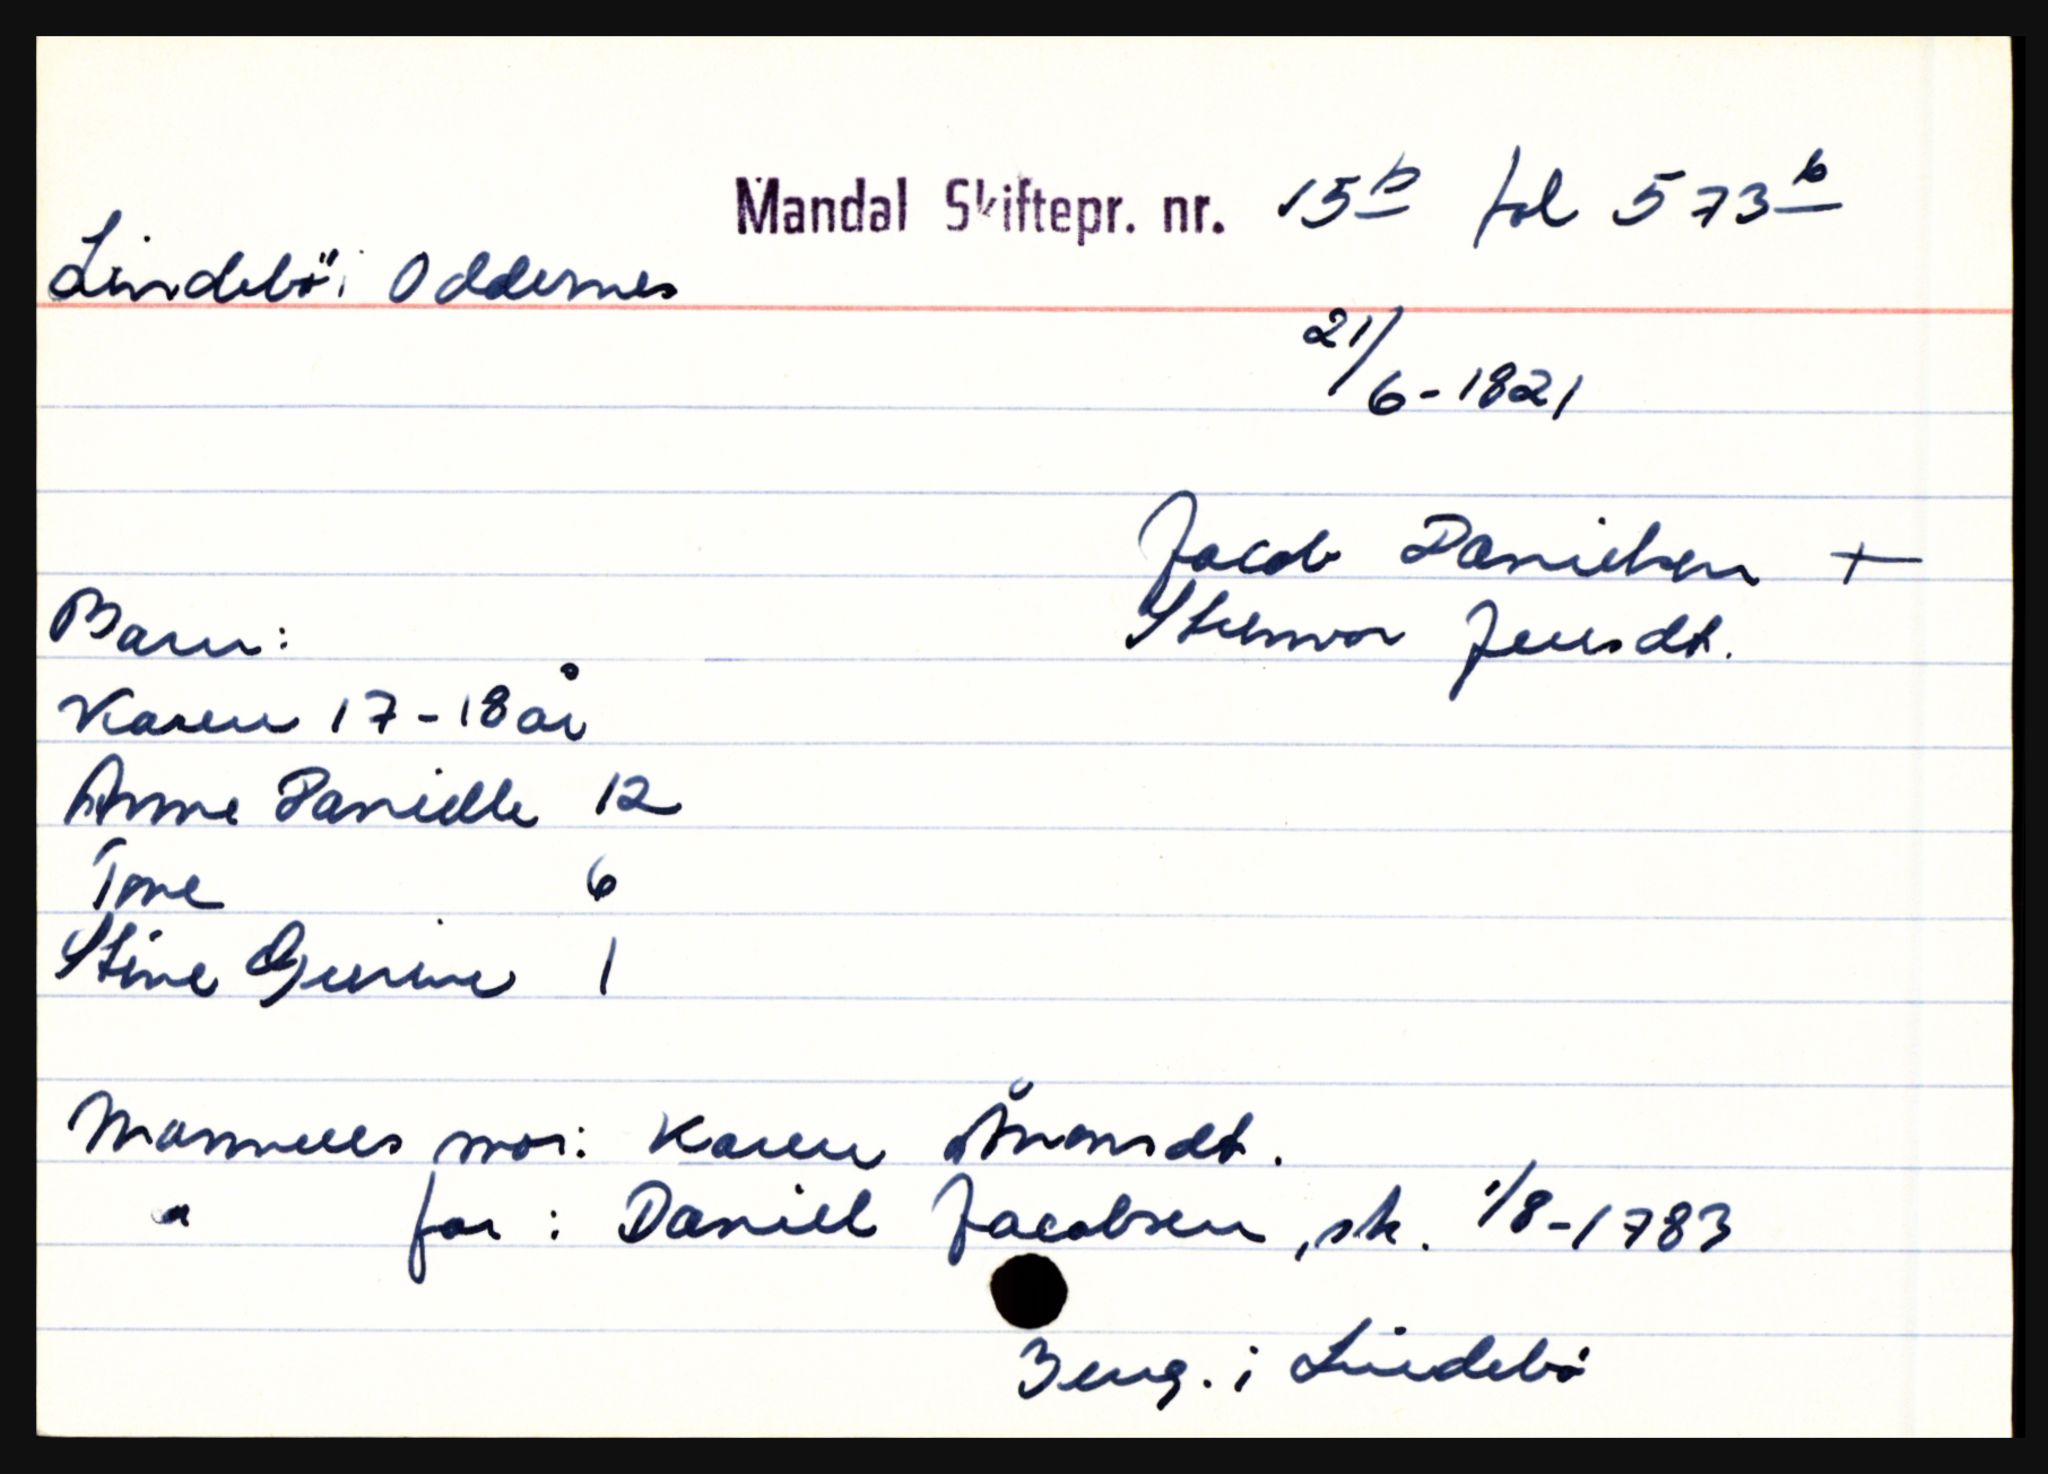 Mandal Skiftepr. nr. 15b fol 573b
Lindebö i Oddernes
21/6-1821
Jacob Danielsen +
Barn:
Stennvor Jensdt.
Karen 17-18 år
Anne Danielle 12
Tone 6
Stine Gurine 1
Mannens mor: Karen Ånonsdt.
" far: Daniel Jacobsen, sk. 1/8-1783
3 eng. i Lindebö